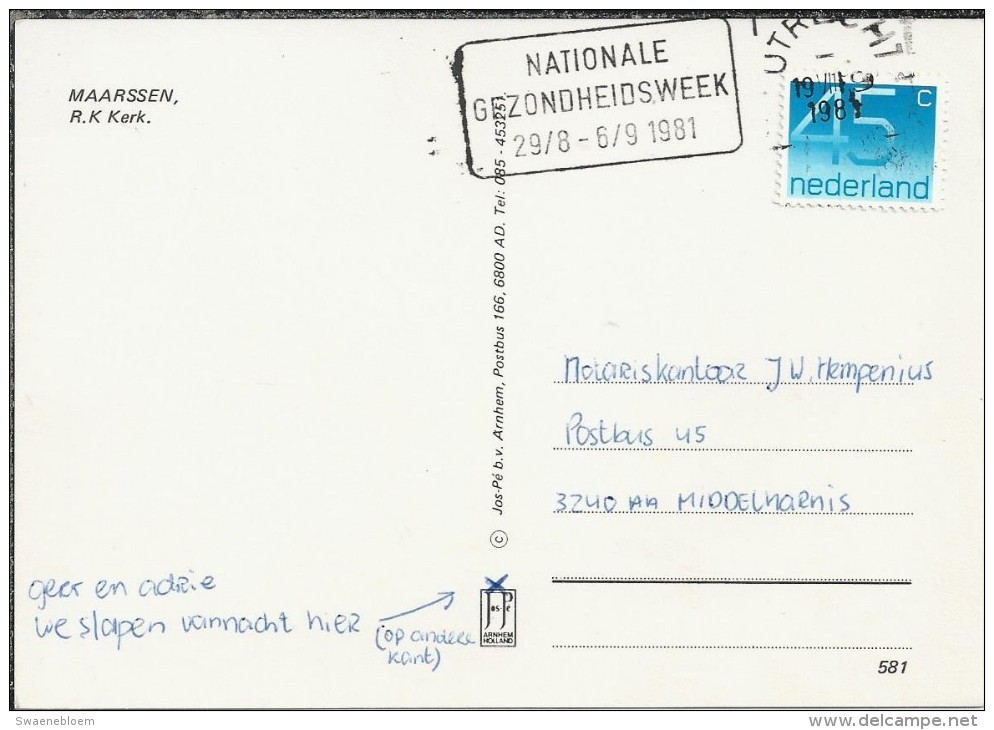 MAARSSEN,
R.K Kerk.
NATIONALE
GEZONDHEIDSWEEK
29/8 - 6/9 1981
UTRECHT
1981
45 c
nederland
© Jos-Pé b.v. Arnhem, Postbus 166, 6800 AD. Tel: 085 - 453251.
Notariskantoor J W. Hempenius
Postbus 45
3240 AA MIDDELHARNIS
geer en adrie
we slapen vannacht hier
(op andere
kant)
Jos-Pé
ARNHEM
HOLLAND
581
Swaenebloem
www.delcampe.net